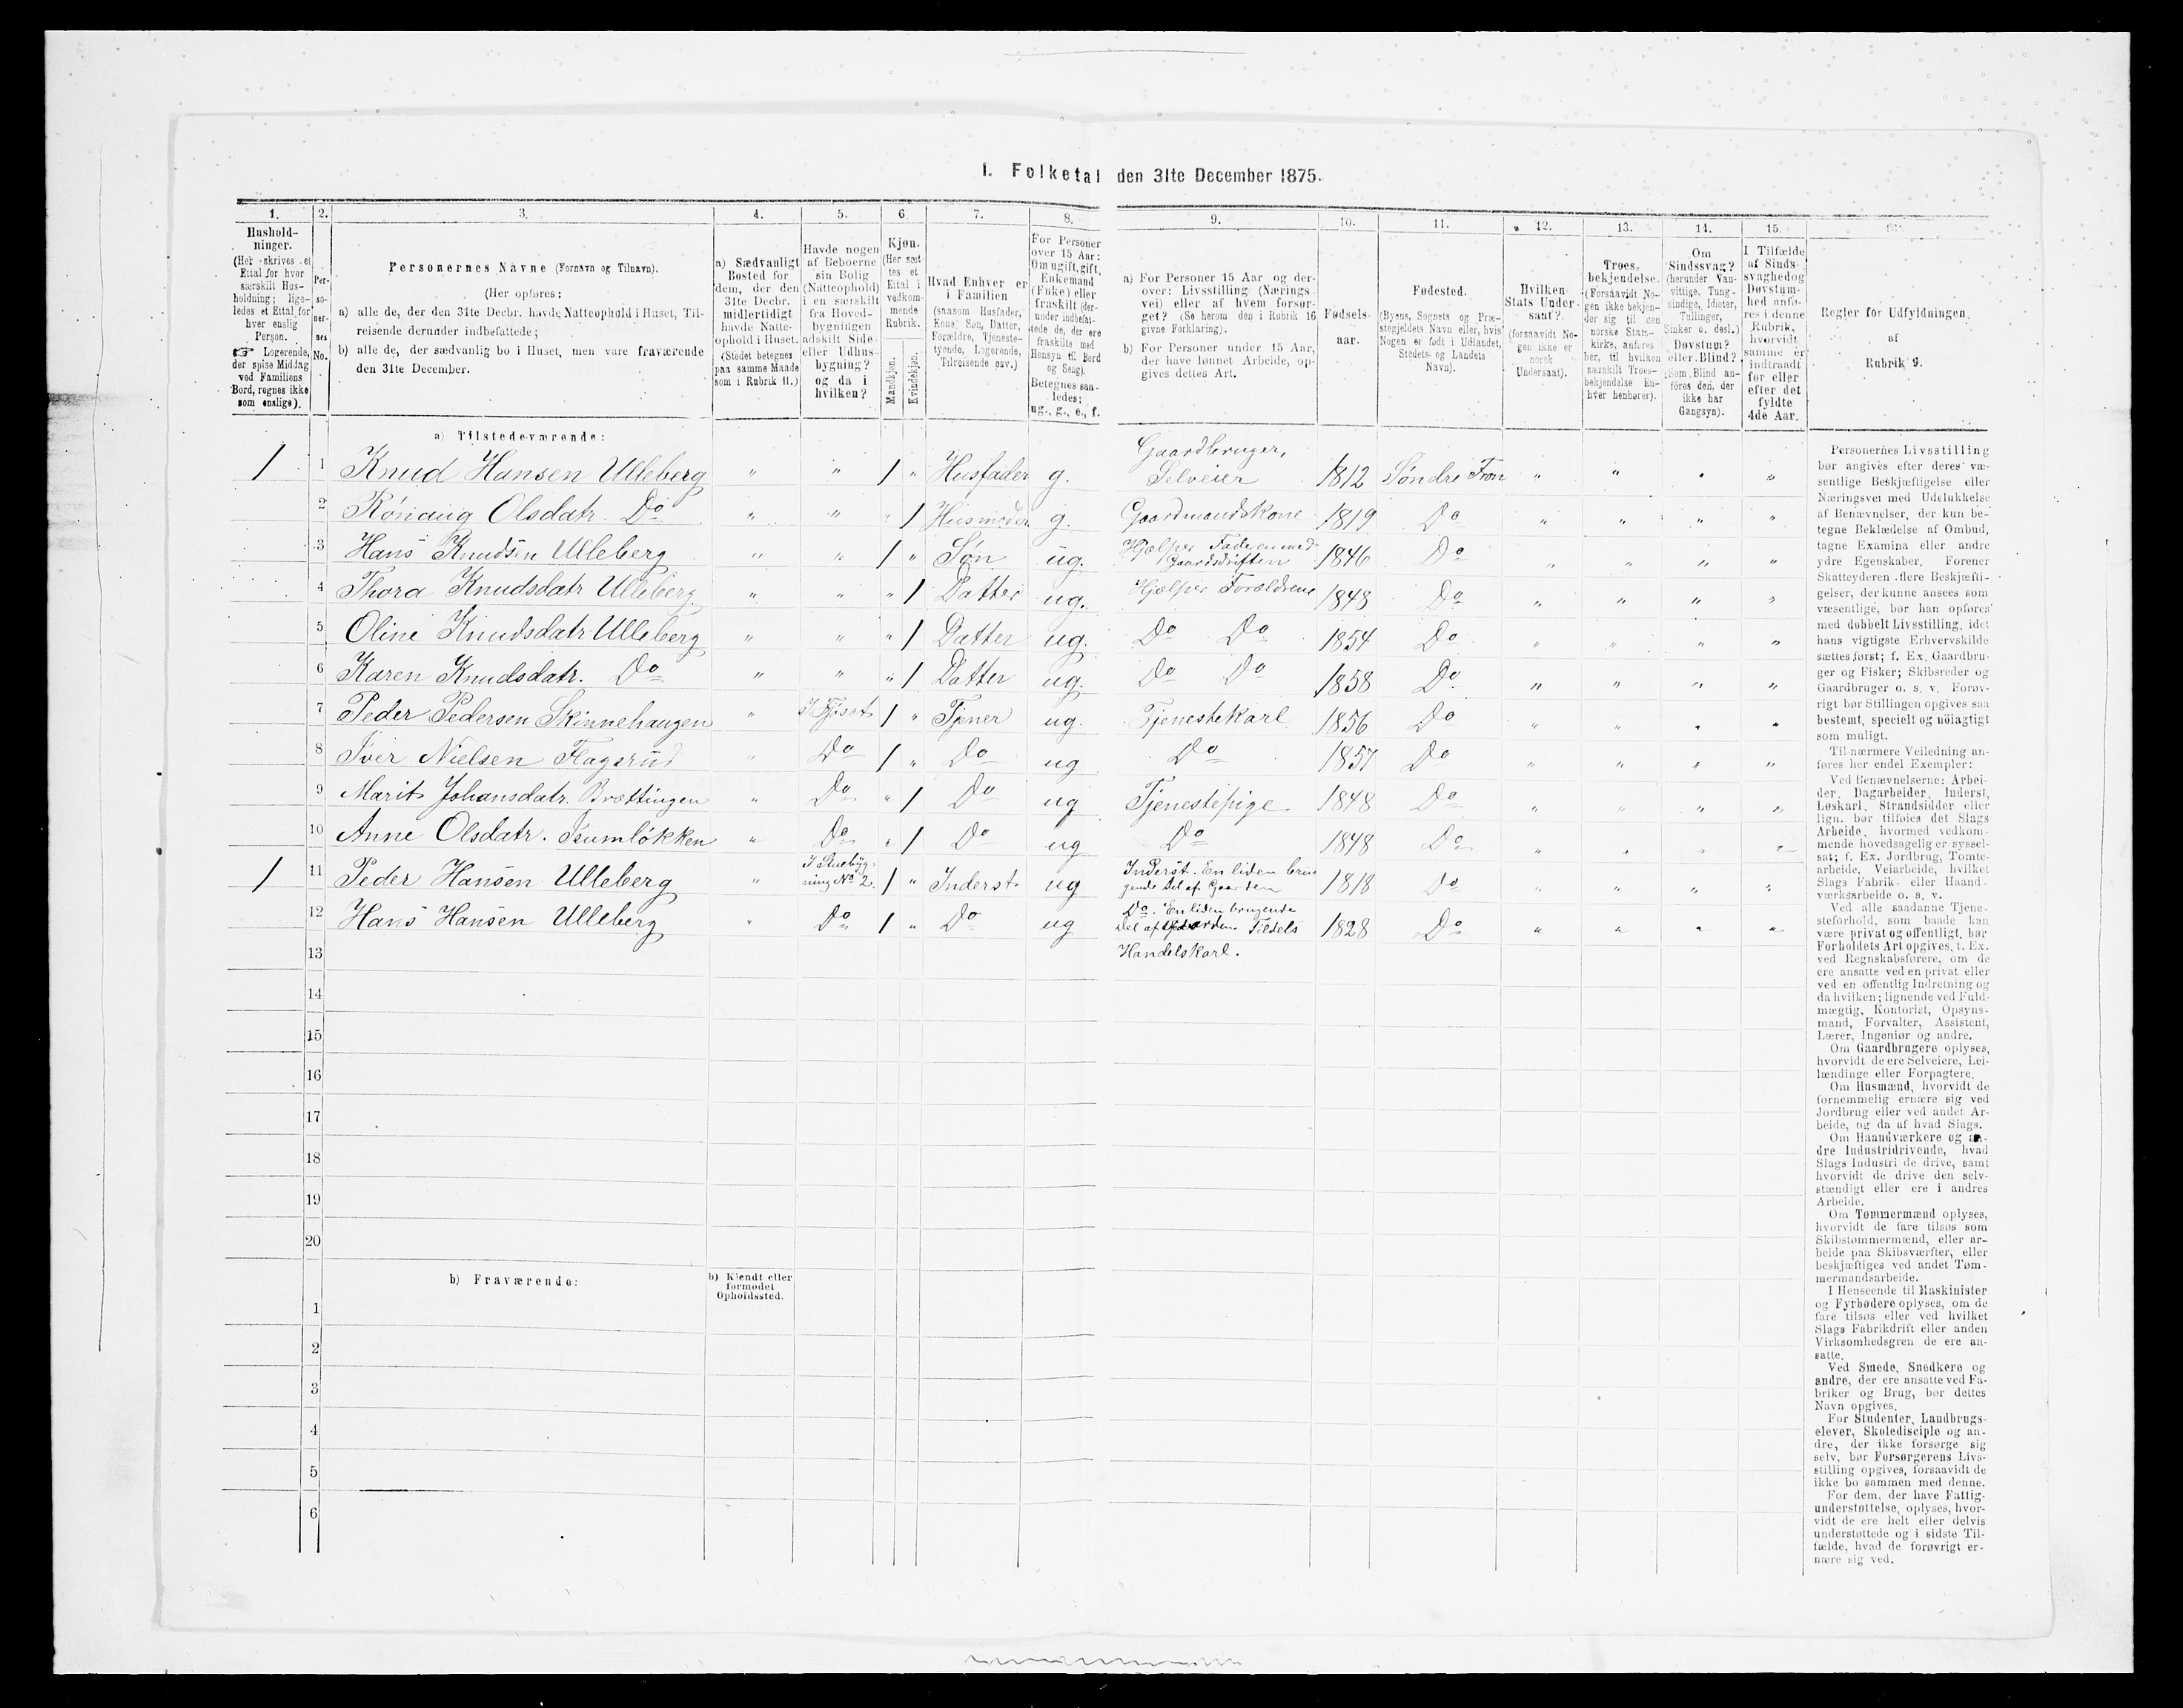 I. Folketal den 31te December 1875.
1. 2. 3. 4. 5. 6. 7. 8. 9. 10. 11. 12. 13. 14. 15. 16.
Hushold-
ninger.
(Her skrives et
Ettal for hver
særskilt Hus-
holdning; lige-
ledes et Ettal for
hver enslig
Person.
☞ Logerende,
der spise Middag
ved Familiens
Bord, regnes ikke
som enslige).
Per-
so-
ner-
nes
No.
Personernes Navne (Fornavn og Tilnavn).
(Her opføres:
a) alle de, der den 31te Decbr. havde Natteophold i Huset, Til-
reisende derunder indbefattede;
b) alle de, der sædvanlig bo i Huset, men vare fraværende
den 31te December.
a) Sædvanligt
Bosted for
dem, der den
31te Decbr.
midlertidigt
havde Natte-
ophold i Huset.
(Stedet betegnes
paa samme Maade
som i Rubrik 11.)
Havde nogen
af Beboerne
sin Bolig
(Natteophold)
i en særskilt
fra Hoved-
bygningen
adskilt Side-
eller Udhus-
bygning?
og da i
hvilken?
Kjøn.
(Her sæt-
tes et
Ettal i
vedkom-
mende
Rubrik.
Mandkjøn.
Kvindekjøn.
Hvad Enhver er
i Familien
(saasom Husfader,
Kone, Søn, Datter,
Forældre, Tjeneste-
tyende, Logerende,
Tilreisende osv.)
For Personer
over 15 Aar:
Om ugift, gift,
Enkemand
(Enke) eller
fraskilt (der-
under indbefat-
tede de, der ere
fraskilte med
Hensyn til Bord
og Seng).
Betegnes saa-
ledes:
ug., g., e., f.
a) For Personer 15 Aar og der-
over: Livsstilling (Nærings-
vei) eller af hvem forsør-
get? (Se herom den i Rubrik 16
givne Forklaring).
b) For Personer under 15 Aar,
der have lønnet Arbeide, op-
gives dettes Art.
Fødsels-
aar.
Fødested.
(Byens, Sognets og Præ-
stegjeldets Navn eller, hvis
Nogen er født i Udlandet,
Stedets- og Landets
Navn).
Hvilken
Stats Under-
saat?
(forsaavidt No-
gen ikke er
norsk
Undersaat).
Troes-
bekjendelse.
(Forsaavidt No-
gen ikke bekjen-
der sig til den
norske Stats-
kirke, anføres
her, til hvilken
særskilt Troes-
bekjendelse En-
hver henhører).
Om
Sindssvag?
(herunder Van-
vittige, Tung-
sindige, Idioter,
Tullinger,
Sinker o. desl.)
Døvstum?
eller Blind?
(Som Blind an-
føres den, der
ikke har
Gangsyn).
I Tilfælde
af Sinds-
svaghed og
Døvstum-
hed anfø-
res i denne
Rubrik,
hvorvidt
samme er
indtraadt
før eller
efter det
fyldte
4de Aar.
Regler for Udfyldningen
af
Rubrik 9.
a) Tilstedeværende:
1 1 Knud Hansen Ulleberg " " 1 " Husfader g. Gaardbruger, Selveier 1812 Søndre Fron " " " "
2 Rönaug Olsdatr. Do " " " 1 Husmoder g. Gaardmandskone 1819 Do " " " "
3 Hans Knudsen Ulleberg " " 1 " Søn ug. Hjælper Faderen med Gaardsdriften 1846 Do " " " "
4 Thora Knudsdatr Ulleberg " " " 1 Datter ug. Hjælper Forældrene 1848 Do " " " "
5 Oline Knudsdatr Ulleberg " " " 1 Datter ug. Do Do 1854 Do " " " "
6 Karen Knudsdatr. Do " " " 1 Datter ug. Do Do 1858 Do " " " "
7 Peder Pedersen Skinnehaugen " I Fjøset 1 " Tjener ug. Tjenestekarl 1856 Do " " " "
8 Iver Nielsen Flagsrud " Do 1 " Do ug Do 1857 Do " " " "
9 Marit Johansdatr. Brættingen " Do " 1 Do ug Tjenestepige 1848 Do " " " "
10 Anne Olsdatr. Isumlökken " Do " 1 Do ug Do 1848 Do " " " "
1 11 Peder Hansen Ulleberg " I Stuebyg-ning No 2. 1 " Inderst ug Inderst. En liden brugende Del af Gaarden 1818 Do " " " "
12 Hans Hansen Ulleberg " Do 1 " Do ug Do. En liden brugende Del af Gaarden. Tildels 1828 Do " " " "
13 Handelskarl.
14
15
16
17
18
19
20
b) Fraværende:
b) Kjendt eller
formodet
Opholdssted.
1
2
3
4
5
6
Personernes Livsstilling
bør angives efter deres væ-
sentlige Beskjæftigelse eller
Næringsvei med Udelukkelse
af Benævnelser, der kun be-
tegne Beklædelse af Ombud,
tagne Examina eller andre
ydre Egenskaber. Forener
Skatteyderen flere Beskjæfti-
gelser, der kunne ansees som
væsentlige, bør han opføres
med dobbelt Livsstilling, idet
hans vigtigste Erhvervskilde
sættes først; f. Ex. Gaardbru-
ger og Fisker; Skibsreder og
Gaardbruger o. s. v. Forøv-
rigt bør Stillingen opgives saa
bestemt, specielt og nöiagtigt
som muligt.
Til nærmere Veiledning an-
føres her endel Exempler:
Ved Benævnelserne: Arbei-
der, Dagarbeider, Inderst,
Løskarl, Strandsidder eller
lign. bør tilføies det Slags
Arbeide, hvormed vedkom-
mende hovedsagelig er syssel-
sat; f. Ex. Jordbrug, Tomte-
arbeide, Veiarbeide, hvilket
Slags Fabrik- eller Haand-
værksarbeide o. s. v.
Ved alle saadanne Tjene-
steforhold, som baade kan
være privat og offentligt, bør
Forholdets Art opgives, t. Ex.
ved Regnskabsførere, om de
ere ansatte ved en privat eller
ved en offentlig Indretning og
da hvilken; lignende ved Fuld-
mægtig, Kontorist, Opsyns-
mand, Forvalter, Assistent,
Lærer, Ingeniør og andre.
Om Gaardbrugere oplyses,
hvorvidt de ere Selveiere, Lei-
lændinge eller Forpagtere.
Om Husmænd, hvorvidt de
fornemmelig ernære sig ved
Jordbrug eller ved andet Ar-
beide, og da af hvad Slags.
Om Haandværkere og an-
dre Industridrivende, hvad
Slags Industri de drive, samt
hvorvidt de drive den selv-
stændigt eller ere i andres
Arbeide.
Om Tømmermænd oplyses,
hvorvidt de fare tilsøs som
Skibstømmermænd, eller ar-
beide paa Skibsværfter, eller
beskjæftiges ved andet Tøm-
mermandsarbeide.
I Henseende til Maskinister
og Fyrbødere oplyses, om de
fare tilsøs eller ved hvilket
Slags Fabrikdrift eller anden
Virksomhedsgren de ere an-
satte.
Ved Smede, Snedkere og
andre, der ere ansatte ved Fa-
briker og Brug, bør dettes
Navn opgives.
For Studenter, Landbrugs-
elever, Skoledisciple og an-
dre, der ikke forsørge sig
selv, bør Forsørgerens Livs-
stilling opgives, forsaavidt de
ikke bo sammen med denne.
For dem, der have Fattig-
understøttelse, oplyses, hvor-
vidt de ere helt eller delvis
understøttede og i sidste Til-
fælde, hvad de forøvrigt er-
nære sig ved.